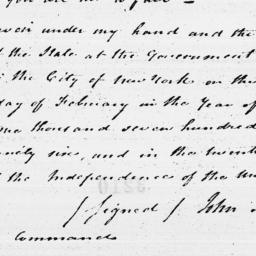 you are
under my hand and the
the State at the Government
the City of New York on the
day of February in the Year of
one thousand seven hundred
six, and in the twent
the Independence of the Un
/ Signed / John
Command